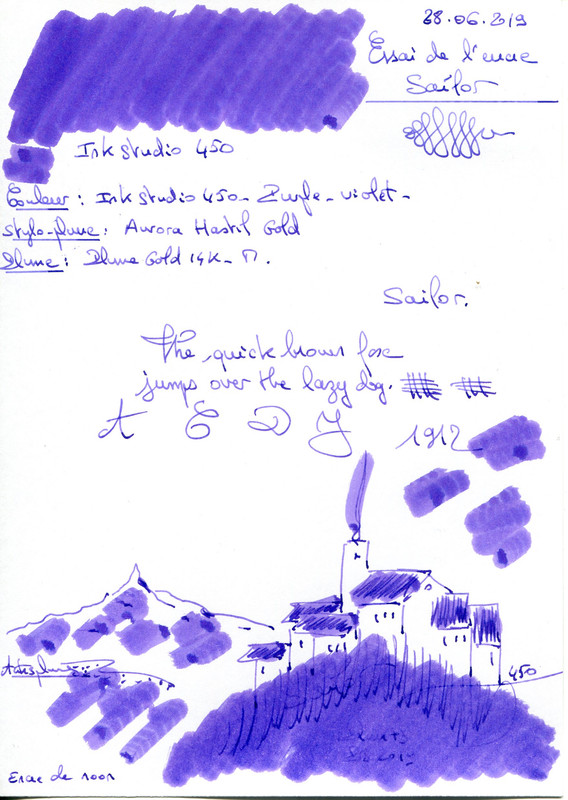 28.06.2019
Essai de l'encre
Sailor
Ink studio 450
Couleur : Ink studio 450 - Purple - violet -
Stylo-plume : Aurora Hastil Gold
Plume : Plume Gold 14K - M.
Sailor.
The quick brown fox
jumps over the lazy dog.
A E D J 1912
450
Encre de